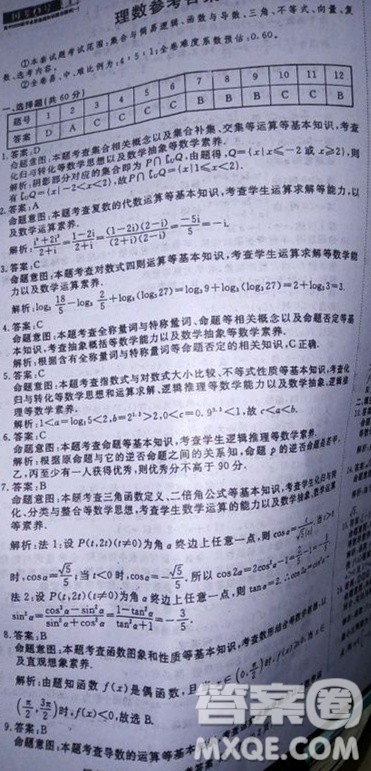 理数参考答
①本套试题考试范围:集合与简易逻辑、函数与导数、三角、不等式、向量、复
数、选考内容。
②全卷易、中、难比例为:4:5:1;全卷难度系数预估:0.60。
一、选择题(共60分)
题号 1 2 3 4 5 6 7 8 9 10 11 12
答案 D A C C C C B B B C C B
1.答案:D
命题意图:本题考查集合相关概念以及集合补集、交集等运算等基本知识,考查
化归与转化等数学思想以及数学抽象等数学素养.
解析:阴影部分对应的集合即为P∩∁UQ.由题得,Q={x|x≤-2或x≥2},则
有∁UQ={x|-2<x<2},故P∩∁UQ={x|1≤x<2}.
2.答案:A
命题意图:本题考查复数的代数运算等基本知识,考查学生运算求解等能力,以
及数学运算素养.
解析:(i⁴+2i³)/(2+i)=(1-2i)/(2+i)=(1-2i)(2-i)/(2+i)(2-i)=-5i/5=-i.
3.答案:C
命题意图:本题考查对数式四则运算等基本知识,考查学生运算求解等数学能
力以及数学运算素养.
解析:log₃ 18/5-log₃ 2/5+log₃(log₃27)=log₃9+log₃(log₃27)=2+log₃3=3.
4.答案:C
命题意图:本题考查全称量词与特称量词、命题等相关概念以及命题否定等基
本知识,考查抽象概括等数学能力以及数学抽象等数学素养.
解析:根据含有全称量词与特称量词等命题否定的相关知识,C正确.
5.答案:C
命题意图:本题考查指数式与对数式大小比较、不等式性质等基本知识,考查化
归与转化等数学思想和运算求解、逻辑推理等数学能力以及数学抽象、逻辑推
理等数学素养.
6.答案:C
命题意图:本题考查命题等基本知识,考查学生逻辑推理等数学素养.
解析:根据原命题与它的逆否命题之间的关系知,命题p的逆否命题是若甲、
乙、丙至少有一人获得优秀,则优秀分不高于90分.
7.答案:B
命题意图:本题考查三角函数定义、二倍角公式等基本知识,考查学生化归与转
化、分类与整合等数学思想,考查学生运算求解的能力以及数学抽象、数学运算
等素养.
解析:法1:设P(t,2t)(t≠0)为角α终边上任意一点,则
时,cosα=√5/5;当t<0时,cosα=-√5/5.所以cos2α=2cos²α-1
法2:设P(t,2t)(t≠0)为角α终边上任意一点,则tanα=2.
=(cos²α-sin²α)/(sin²α+cos²α)=(1-tan²α)/(tan²α+1)=-3/5.
8.答案:B
命题意图:本题考查函数图象和性质等基本知识,考查数形结合等数学思想,以
及直观想象素养.
解析:由题知函数f(x)是偶函数,且
(π/2,3π/2)时,f(x)<0,故选B.
9.答案:B
命题意图:本题考查导数的运算等基本
答案圈
MXQE.COM